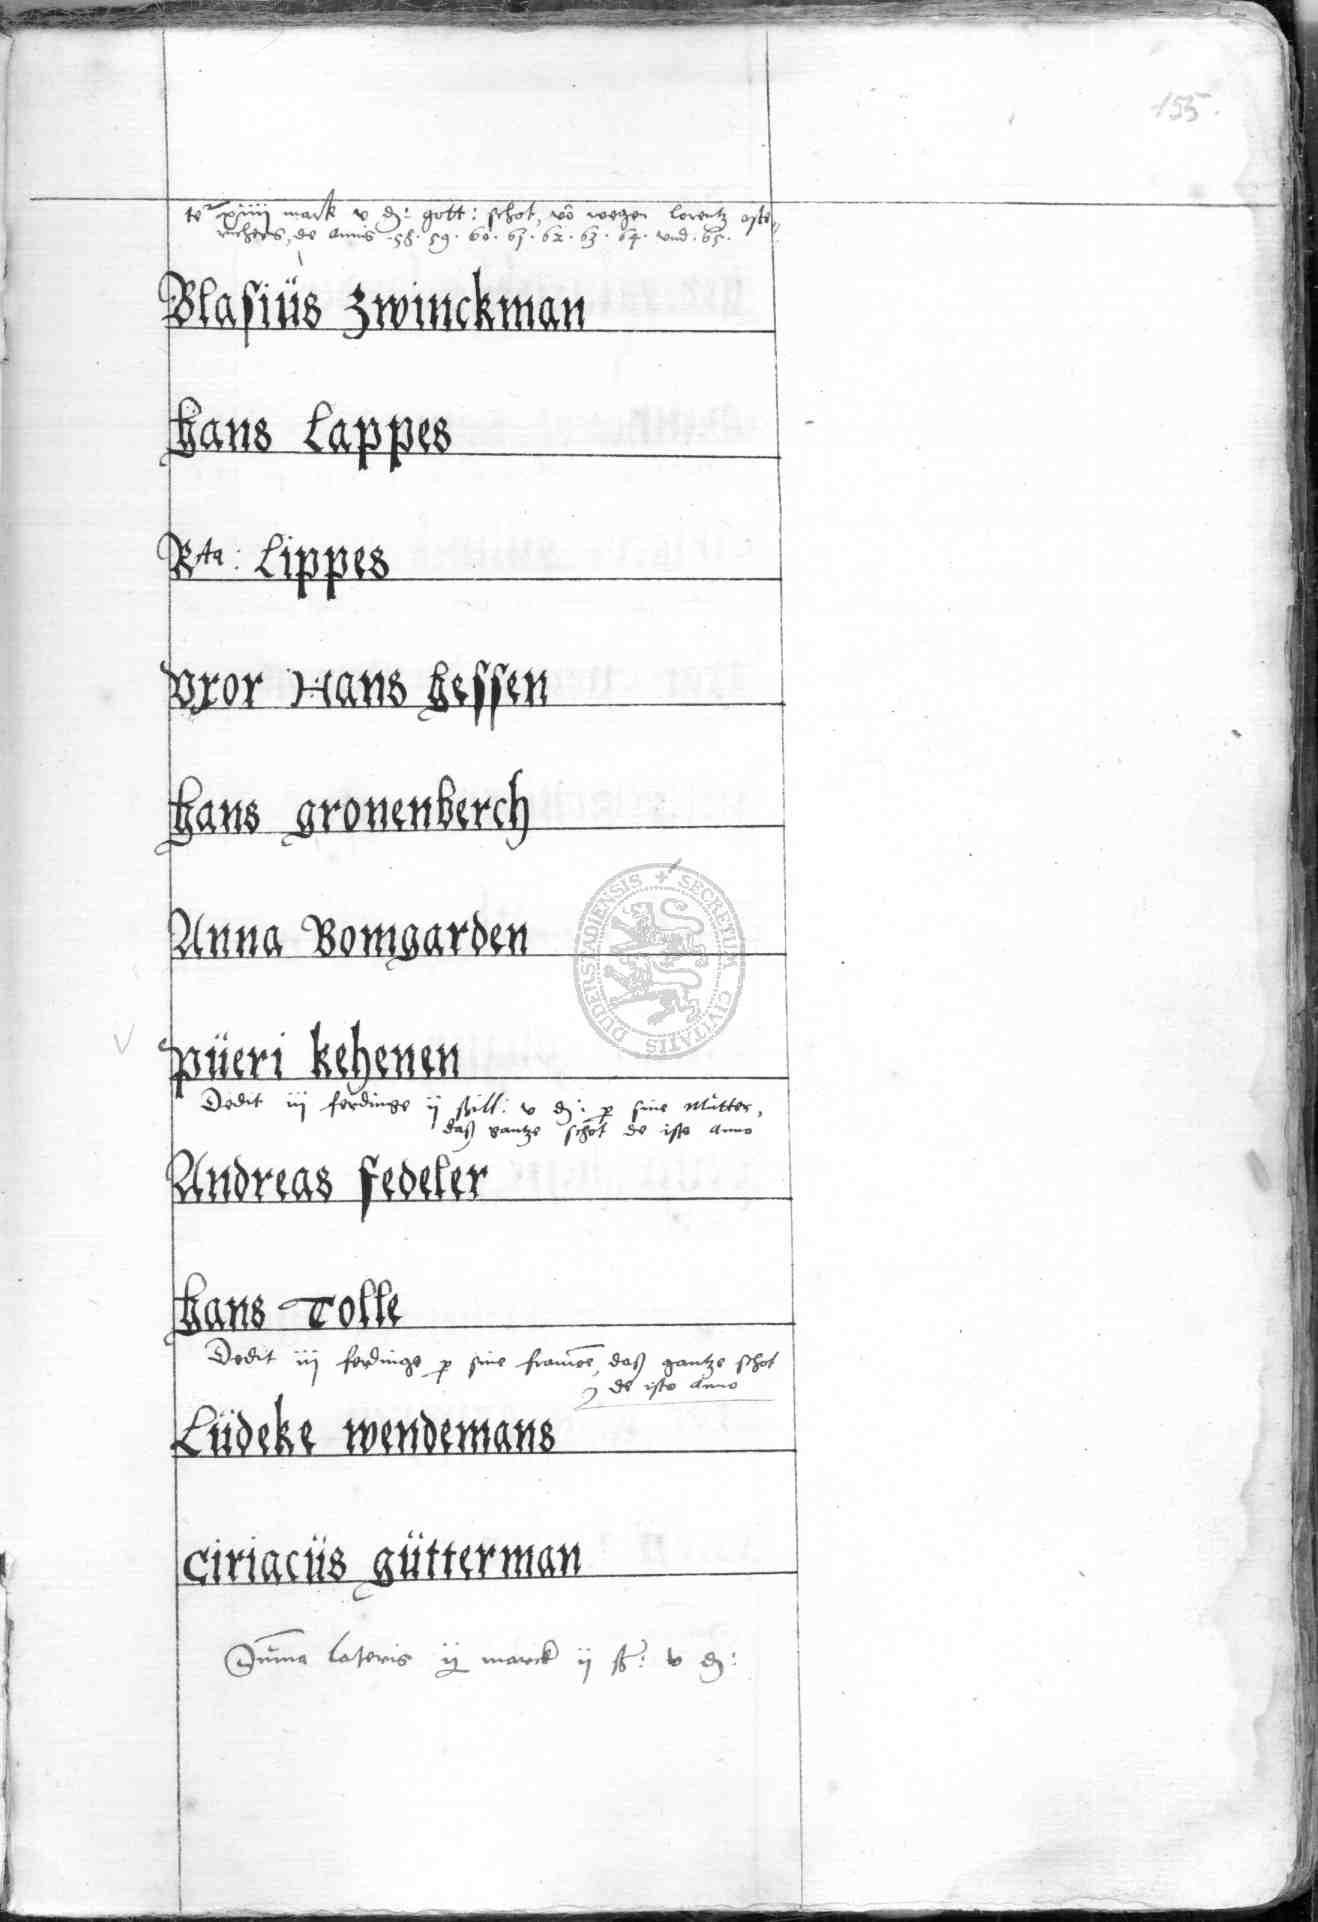 155.
te xiiii mark v đ: gott: schot, vō wegen lorentz oste,,
richers, de annis .58. 59. 60. 61. 62. 63. 64. vnd .65.
Blasiüs Zwinckman
Hans Lappes
Rta: Lippes
Vxor Hans Hessen
Hans gronenberch
Anna Bomgarden
SECRETUM CIVITATIS DUDERSTADIENSIS
püeri kehenen
Dedit iij ferdinge ij sill: v đ: p sine Mutter,
daß gantze schot de isto anno
Andreas Fedeler
Hans Tolle
Dedit iij ferdinge p sine frauwe, daß gantze schot
de isto anno
Lüdeke wendemans
Ciriaciis gütterman
Suma lateris ij marck ij ß: v đ: